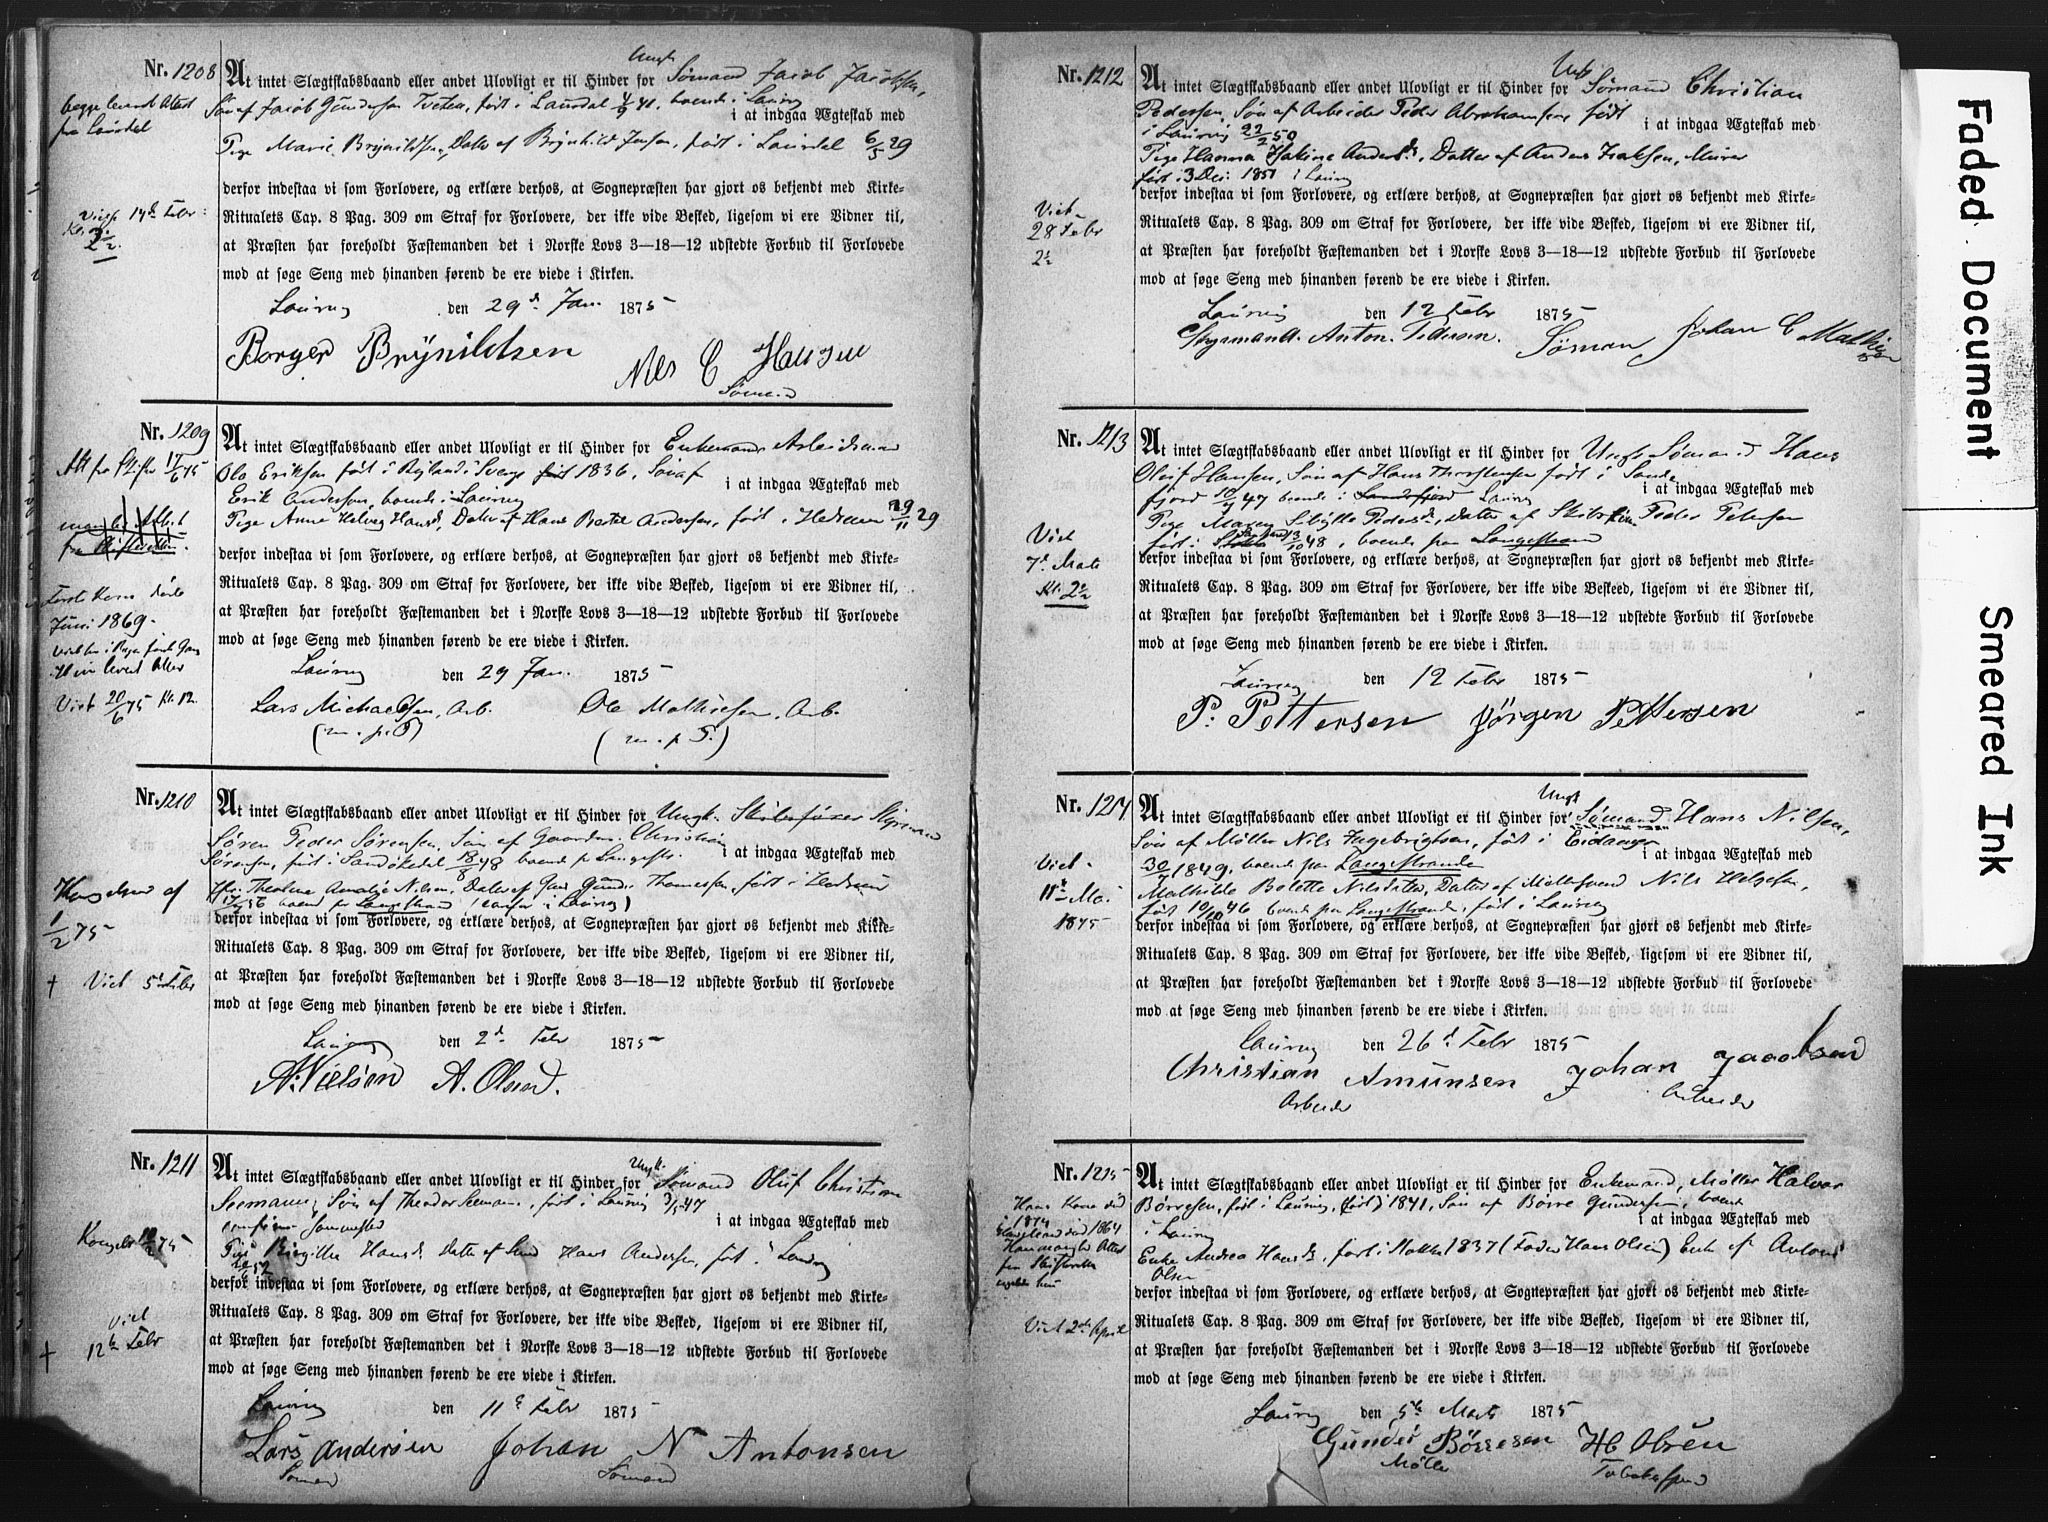 Nr. 1208
At intet Slægtskabsbaand eller andet Ulovligt er til Hinder for Ungk. Sømand Jacob Jacobsen,
Søn af Jacob Gundersen Tveten, født i Laurdal 41, boende i Laurvig
i at indgaa Ægteskab med
Pige Marie Brynildsen, Datter af Brynhild Jensen, født i Laurdal 6/5 29
derfor indestaa vi som Forlovere, og erklære derhos, at Sognepræsten har gjort os bekjendt med Kirke-
Ritualets Cap. 8 Pag. 309 om Straf for Forlovere, der ikke vide Besked, ligesom vi ere Vidner til,
at Præsten har foreholdt Fæstemanden det i Norske Lovs 3—18—12 udstedte Forbud til Forlovede
mod at søge Seng med hinanden førend de ere viede i Kirken.
Laurvig den 29d Jan. 1875
Borger Brynildsen Nils C Hansen
Sømand
begge leveret Attest
fra Laurdal
Viet 14d Febr
Kl. 2½
Nr. 1209
At intet Slægtskabsbaand eller andet Ulovligt er til Hinder for Enkemand Arbeidsmand
Ole Eriksen født i Ryland i Sverge født 1836, Søn af
i at indgaa Ægteskab med
Erik Andersen, boende i Laurvig
Pige Anne Helvig Hansd, Datter af Hans Bertel Andersen, født i Hedrum 29/11 29
derfor indestaa vi som Forlovere, og erklære derhos, at Sognepræsten har gjort os bekjendt med Kirke-
Ritualets Cap. 8 Pag. 309 om Straf for Forlovere, der ikke vide Besked, ligesom vi ere Vidner til,
at Præsten har foreholdt Fæstemanden det i Norske Lovs 3—18—12 udstedte Forbud til Forlovede
mod at søge Seng med hinanden førend de ere viede i Kirken.
Laurvig den 29 Jan. 1875
Lars Michaelsen, Arb. Ole Mathiesen, Arb.
(m. p. P) (m. p. P.)
Att fra Skifter 17/6 75
mangler Attest
fra Skifteretten
Første Kone døde
Juni 1869.
Viet 20/6 75 Kl. 12.
Nr. 1210
At intet Slægtskabsbaand eller andet Ulovligt er til Hinder for Ungk. Skibsfører Styrmand
Søren Peder Sørensen, Søn af Gaardm. Christian
i at indgaa Ægteskab med
Sørensen, født i Sandøkedal 18/8 48 boende p Langestr.
Theoline Amalie Nilsen, Datter af Gunder Thomessen, født i Hedrum
56 boend paa Langestrand (confir i Laurvig)
derfor indestaa vi som Forlovere, og erklære derhos, at Sognepræsten har gjort os bekjendt med Kirke-
Ritualets Cap. 8 Pag. 309 om Straf for Forlovere, der ikke vide Besked, ligesom vi ere Vidner til,
at Præsten har foreholdt Fæstemanden det i Norske Lovs 3—18—12 udstedte Forbud til Forlovede
mod at søge Seng med hinanden førend de ere viede i Kirken.
Laurvig den 2d Febr 1875
A. Nielsen A. Olsen.
af
1/2 75
+ Viet 5t Febr
Nr. 1211
At intet Slægtskabsbaand eller andet Ulovligt er til Hinder for Ungk. Sømand Oluf Christian
Seemann, Søn af Theodor Seemann, født i Laurvig 47
i at indgaa Ægteskab med
Pige Birgitte Hansd. Datter af Hans Andersen, født i Laurvig
52
derfor indestaa vi som Forlovere, og erklære derhos, at Sognepræsten har gjort os bekjendt med Kirke-
Ritualets Cap. 8 Pag. 309 om Straf for Forlovere, der ikke vide Besked, ligesom vi ere Vidner til,
at Præsten har foreholdt Fæstemanden det i Norske Lovs 3—18—12 udstedte Forbud til Forlovede
mod at søge Seng med hinanden førend de ere viede i Kirken.
Laurvig den 11d Febr 1875
Lars Andersen Johan N Antonsen
Sømand Sømand
Viet
+ 12te Febr
Nr. 1212
At intet Slægtskabsbaand eller andet Ulovligt er til Hinder for Ungk Sømand Christian
Pedersen, Søn af Arbeider Peder Abrahamsen født
i at indgaa Ægteskab med
i Laurvig 22/2 50
Pige Hanna Jakine Andersd, Datter af Anders Isaksen, Murer
født 3 Dec. 1851 i Laurvig
derfor indestaa vi som Forlovere, og erklære derhos, at Sognepræsten har gjort os bekjendt med Kirke-
Ritualets Cap. 8 Pag. 309 om Straf for Forlovere, der ikke vide Besked, ligesom vi ere Vidner til,
at Præsten har foreholdt Fæstemanden det i Norske Lovs 3—18—12 udstedte Forbud til Forlovede
mod at søge Seng med hinanden førend de ere viede i Kirken.
Laurvig den 12 Febr 1875
Styrmand. Anton. Pedersen. Sømand Johan C Mathisen
Viet
28 Febr
2½
Nr. 1213
At intet Slægtskabsbaand eller andet Ulovligt er til Hinder for Ungk Sømand Hans
Oluf Hansen, Søn af Hans Thorstensen født i Sande
i at indgaa Ægteskab med
fjord 10/7 47 boende i Sandefjord Laurvig
Pige Maren Sibylle Pedersd, Datter af Skibsfører Peder Petersen
født i 13/10 48, boende paa Langestrand
derfor indestaa vi som Forlovere, og erklære derhos, at Sognepræsten har gjort os bekjendt med Kirke-
Ritualets Cap. 8 Pag. 309 om Straf for Forlovere, der ikke vide Besked, ligesom vi ere Vidner til,
at Præsten har foreholdt Fæstemanden det i Norske Lovs 3—18—12 udstedte Forbud til Forlovede
mod at søge Seng med hinanden førend de ere viede i Kirken.
Laurvig den 12 Febr 1875
P. Pettersen Jørgen Pettersen
Viet
7d Mats
Kl. 2½
Nr. 1214
At intet Slægtskabsbaand eller andet Ulovligt er til Hinder for Ungk Sømand Hans Nilsen,
Søn af Møller Nils Hagebrigtsen, født i Eidanger
i at indgaa Ægteskab med
30/7 1849, boende paa Langestranden
Mathilde Bolette Nilsdatter, Datter af Møllersvend Nils Helgesen,
født 10/10 46 boende paa Langestrand, født i Laurvig
derfor indestaa vi som Forlovere, og erklære derhos, at Sognepræsten har gjort os bekjendt med Kirke-
Ritualets Cap. 8 Pag. 309 om Straf for Forlovere, der ikke vide Besked, ligesom vi ere Vidner til,
at Præsten har foreholdt Fæstemanden det i Norske Lovs 3—18—12 udstedte Forbud til Forlovede
mod at søge Seng med hinanden førend de ere viede i Kirken.
Laurvig den 26d Febr 1875
Christian Amunsen Johan Jacobsen
Arbeider Arbeider
Viet
11te Ma.
1875
Nr. 1215
At intet Slægtskabsbaand eller andet Ulovligt er til Hinder for Enkemand, Møller Halvor
Børresen, født i Laurvig, født 1841, Søn af Børre Gundersen, boende
i at indgaa Ægteskab med
i Laurvig
Enke Andrea Hansd, født i 1837 (Fader Hans Olsen) Enke af Anton
Olsen
derfor indestaa vi som Forlovere, og erklære derhos, at Sognepræsten har gjort os bekjendt med Kirke-
Ritualets Cap. 8 Pag. 309 om Straf for Forlovere, der ikke vide Besked, ligesom vi ere Vidner til,
at Præsten har foreholdt Fæstemanden det i Norske Lovs 3—18—12 udstedte Forbud til Forlovede
mod at søge Seng med hinanden førend de ere viede i Kirken.
Laurvig den 5te Marts 1875
Gunder Børresen HC Olsen
Møller
Hans Kone død
i 1874
død 1864
Han mangler Attest
fra Skifteretten
Viet 2den April
Faded Document
Smeared Ink